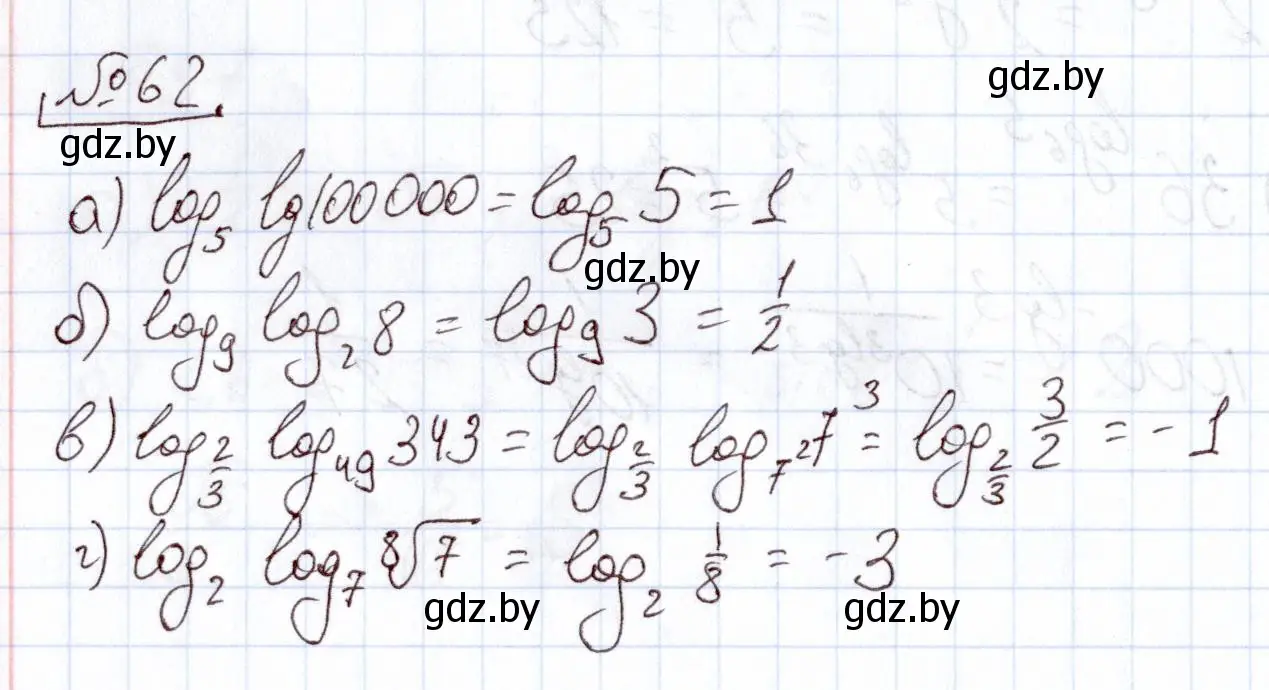 №62
gdz.by
gdz.by
а) log₅ lg100000 = log₅ 5 = 1
gdz.by
б) log₉ log₂ 8 = log₉ 3 = 1/2
в) log_{2/3} log₄₉ 343 = log_{2/3} log_{7²} 7³ = log_{2/3} 3/2 = -1
г) log₂ log₇ ⁸√7 = log₂ 1/8 = -3
gdz.by
gdz.by